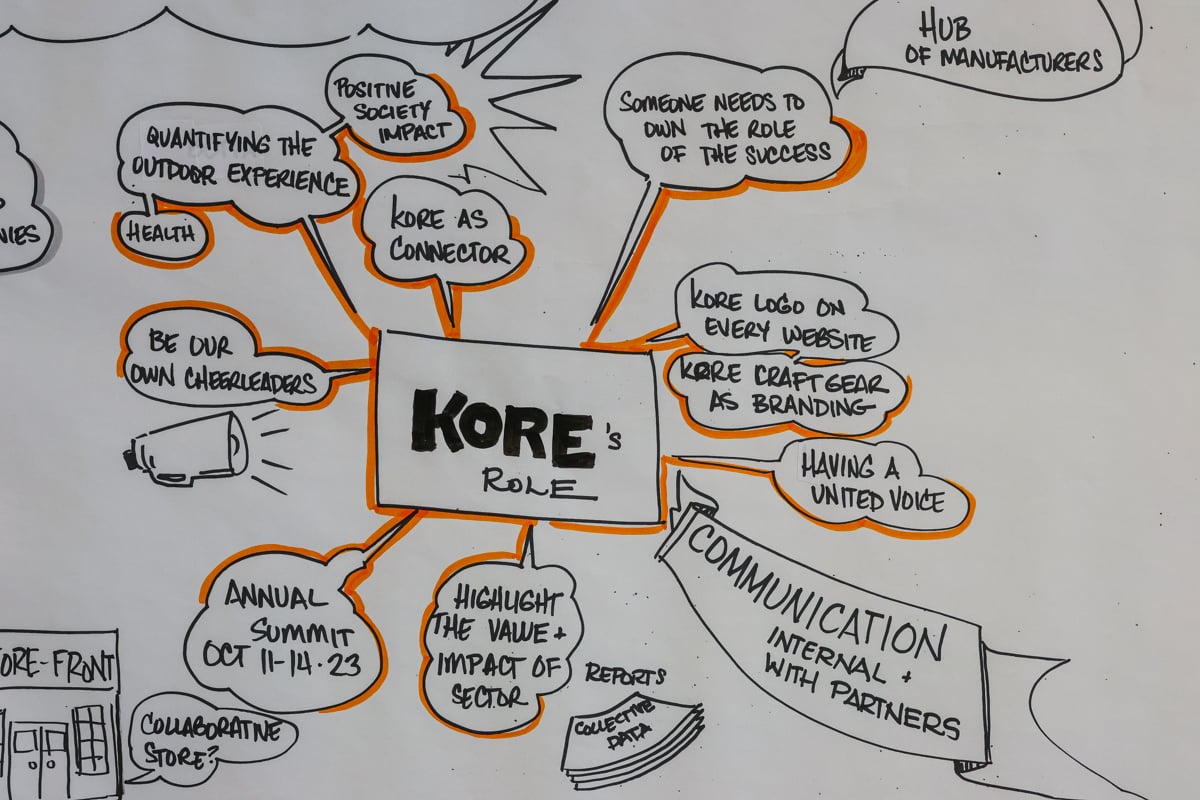 HUB
OF MANUFACTURERS
POSITIVE
SOCIETY
IMPACT
QUANTIFYING THE
OUTDOOR EXPERIENCE
HEALTH
KORE AS
CONNECTOR
SOMEONE NEEDS TO
OWN THE ROLE
OF THE SUCCESS
KORE LOGO ON
EVERY WEBSITE
KORE CRAFT GEAR
AS BRANDING
BE OUR
OWN CHEERLEADERS
KORE's
ROLE
HAVING A
UNITED VOICE
COMMUNICATION
INTERNAL +
WITH PARTNERS
ANNUAL
SUMMIT
OCT 11-14·23
HIGHLIGHT
THE VALUE +
IMPACT OF
SECTOR
REPORTS
COLLECTIVE
DATA
ORE-FRONT
COLLABORATIVE
STORE?